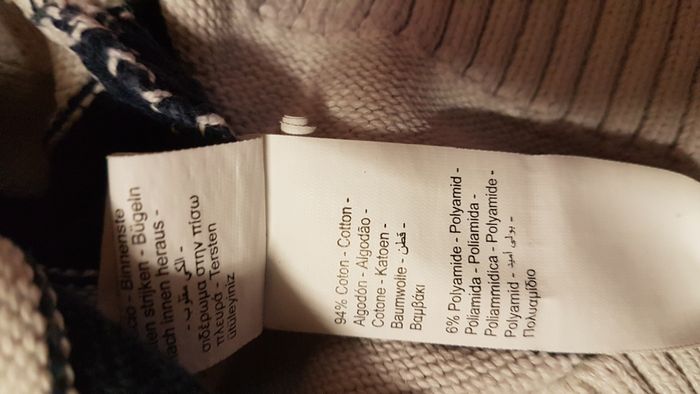 - Binnenste
strijken - Bügeln
nach innen heraus -
- الكي مقلوب -
σιδέρωμα στην πίσω
πλευρά - Tersten
ütüleyiniz
94% Coton - Cotton -
Algodón - Algodão -
Cotone - Katoen -
Baumwolle - قطن -
Βαμβάκι
6% Polyamide - Polyamid -
Poliamida - Poliamida -
Poliammidica - Polyamide -
Polyamid - بولي اميد -
Πολυαμίδιο